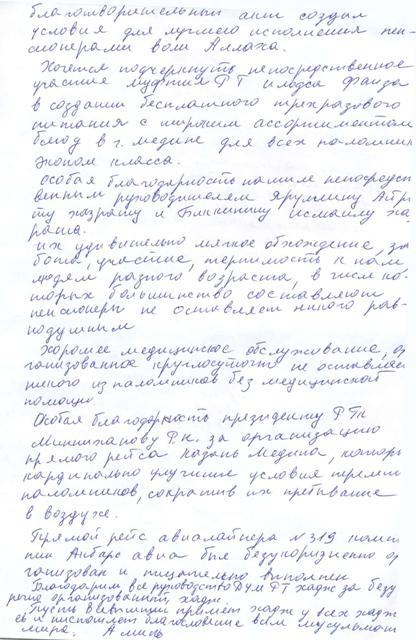 благотворительный акт создал
условия для лучшего исполнения пен-
сионерами воли Аллаха.
Хочется подчеркнуть непосредственное
участие муфтия РТ Илдуса Фаиза
в создании бесплатного трехразового
питания с широким ассортиментом
блюд в г. Медине для всех паломник
эконом класса.
Особая благодарность нашим непосредст
венным руководителям Яруллину Айра
ту хазрату и Биккинину Исмаилу ха
рата.
их удивительно мягкое обхождение, за
бота, участие, терпимость к нам
людям разного возраста, в числе ко-
торых большинство составляют
пенсионеры не оставляет никого рав-
нодушным
Хорошее медицинское обслуживание, ор
ганизованное круглосуточно не оставляет
никого из паломников без медицинской
помощи.
Особая благодарность президенту РТ
Минниханову Р.Н. за организацию
прямого рейса Казань Медина, которы
кардинально улучшил условия
паломников, сократив их пребывание
в воздухе.
Прямой рейс авиалайнера N 319 компа
нии Ак барс авиа был безукоризненно ор
ганизован и тщательно выполнен
Благодарим все руководство ДУМ РТ хадж за безу
организованный хадж
Пусть Всевышний примет хадж у всех хадж
ев и ниспошлет благословение всем мусульмана
мира. Аминь